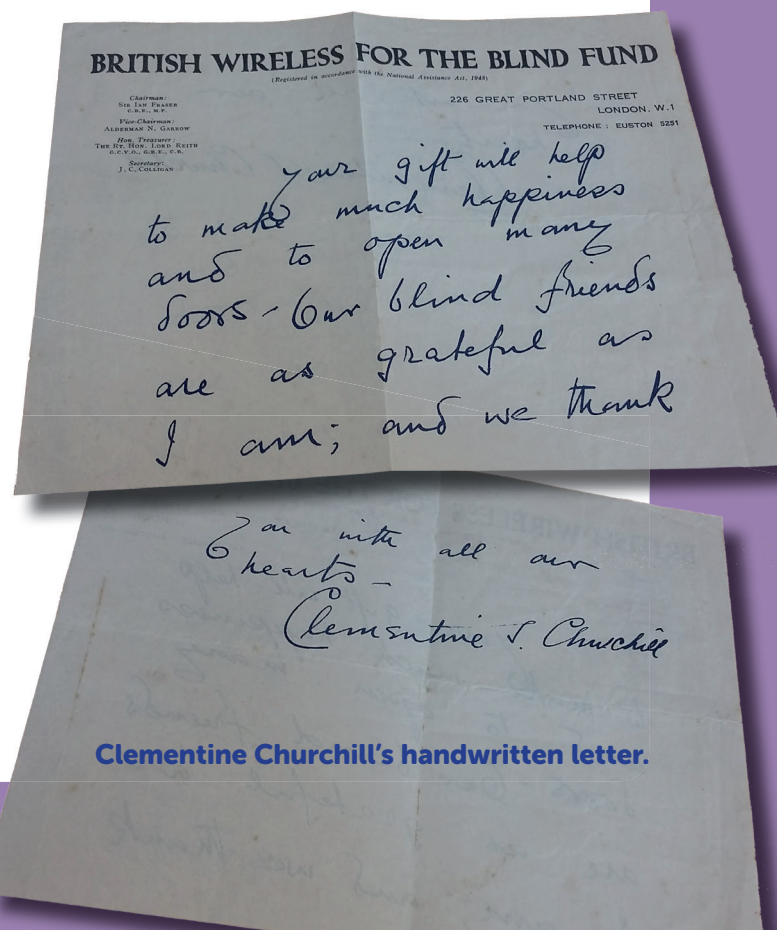 BRITISH WIRELESS FOR THE BLIND FUND
(Registered in accordance with the National Assistance Act, 1948)
Chairman:
SIR IAN FRASER
C.B.E., M.P.
Vice-Chairman:
ALDERMAN N. GARROW
Hon. Treasurer:
THE RT. HON. LORD REITH
G.C.V.O., G.B.E., C.B.
Secretary:
J. C. COLLIGAN
226 GREAT PORTLAND STREET
LONDON. W.1
TELEPHONE : EUSTON 5251
Your gift will help
to make much happiness
and to open many
doors - Our blind friends
are as grateful as
I am; and we thank
You with all our
hearts -
Clementine S. Churchill
Clementine Churchill's handwritten letter.